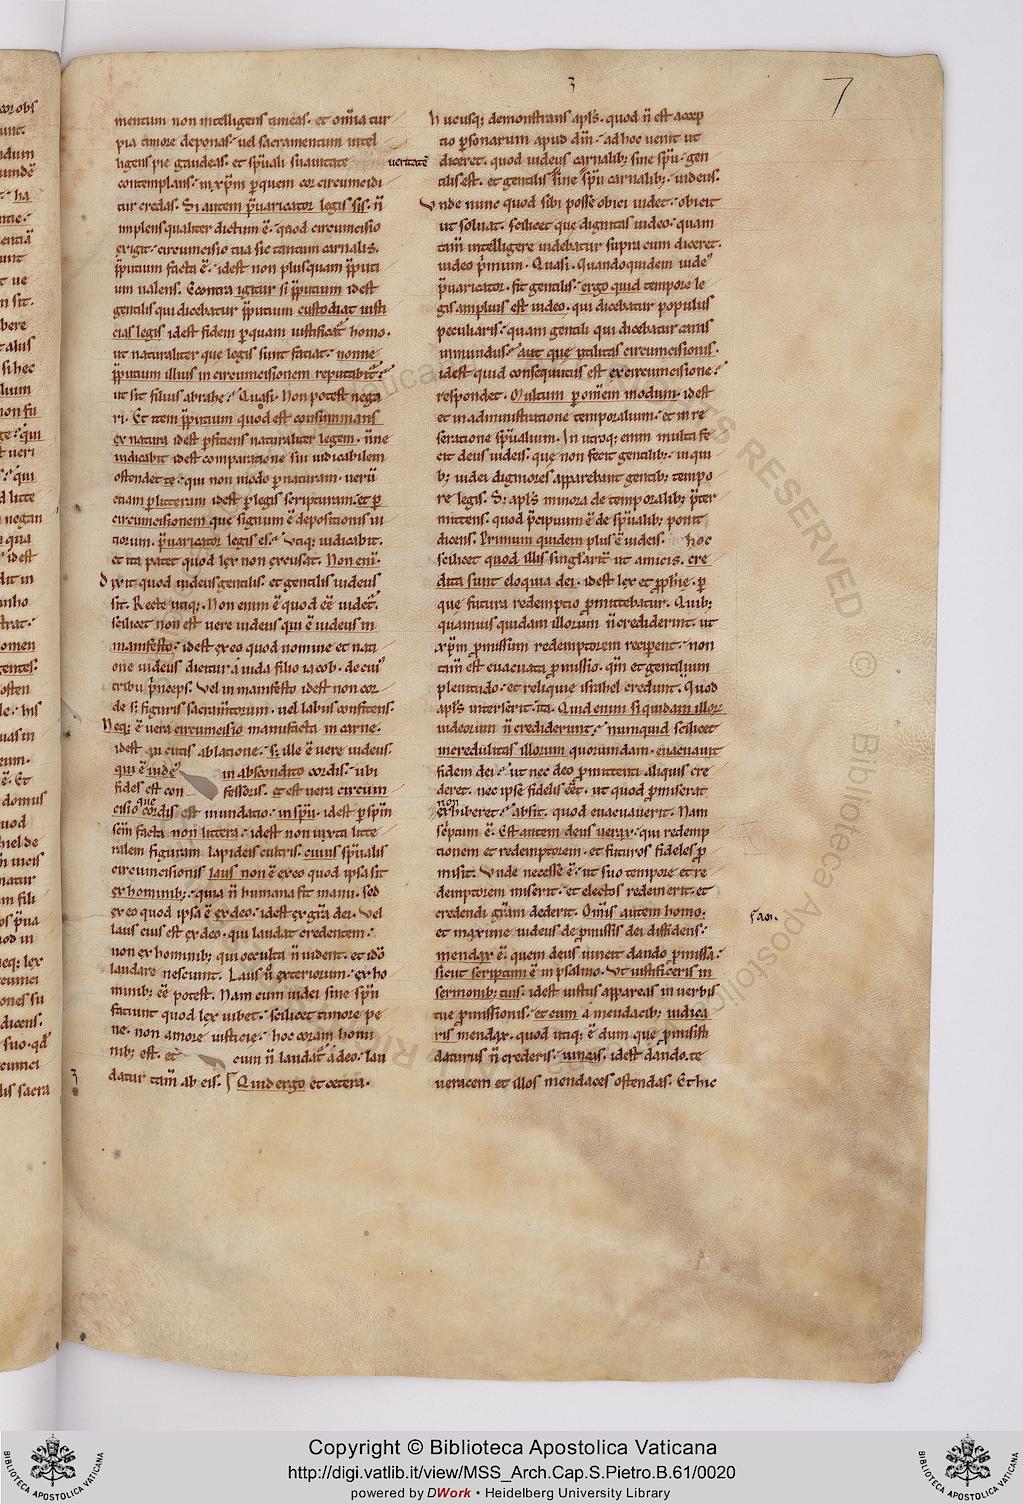 3
7
mentum non intelligens timeas. et om̅ia tur
pia timore deponas. uel sacramentum intel
ligens pie gaudeas. et sp̅uali suauitate
contemplans. in xp̅m p̱ quem cor circumcidi
tur credas. Si autem p̅uaricator legis sis. n̅
implens qualiter dictum e̅. quod circumcisio
exigit. circumcisio tua sic tantum carnalis.
p̅putium facta e̅. idest non plusquam p̅puti
um ualens. Econtra igitur si p̅putium idest
gentilis qui dicebatur p̅putium custodiat iusti
cias legis idest fidem p̱ quam iustificat̅ homo.
ut naturaliter que legis sunt faciat. nonne
p̅putium illius in circumcisionem reputabit̅.
ut sit filius abrahe. Quasi. Non potest nega
ri. Et item p̅putium quod est consummans
ex natura idest p̱ficiens naturaliter legem. n̅ne
iudicabit idest comparatione sui iudicabilem
ostendet te. qui non modo p̱ naturam. ueru̅
etiam p̱ litteram idest p̱ legis scripturam. et p̱
circumcisionem que signum e̅ depositionis ui
tiorum. p̅uaricator legis es. Utiq; iudicabit.
et ita patet quod lex non excusat. Non eni̅.
Dixit quod iudeus gentilis. et gentilis iudeus
sit. Recte utiq;. Non enim e̅ quod ee̅ uidet̅.
scilicet non est uere iudeus qui e̅ iudeus in
manifesto. idest ex eo quod nomine et nati
one iudeus dicitur a iuda filio iacob. de cui᾽
tribu p̅nceps. Vel in manifesto idest non cor
de s; figuris sacram̅torum. uel labiis confitens.
Neq; e̅ uera circumcisio manufacta in carne.
idest in cutis ablatione. S; ille e̅ uere iudeus.
qui e̅ iude᾽ in abscondito cordis. ubi
fides est con fessous. et est uera circum
cisio que cordis est mundatio. in sp̅u. idest p̱ sp̅m
sc̅m facta non littera. idest non iuxta litte
ralem figuram lapideis cultris. cuius sp̅ualis
circumcisionis laus non e̅ ex eo quod ipsa sit
ex hominib;. quia n̅ humana fit manu. sed
ex eo quod ipsa e̅ ex deo. idest ex gr̅a dei. Vel
laus eius est ex deo. qui laudat credentem.
non ex hominib; qui occulta n̅ uident. et ido̅
laudare nesciunt. Laus u̅ exteriorum. ex ho
minib; ee̅ potest. Nam cum iudei sine sp̅u
faciunt quod lex iubet. scilicet timore pe
ne. non amore iusticie. hoc coram homi
nib; est. et cum n̅ laudat̅ a deo. lau
datur tam̅ ab eis. Quid ergo et cetera.
ueritate̅
Hucusq; demonstrans apl̅s. quod n̅ est accep
tio p̱sonarum apud dm̅. ad hoc uenit ut
diceret. quod iudeus carnalib; sine sp̅u. gen
tilis est. et gentilis sine sp̅u carnalib;. iudeus.
Vnde nunc quod sibi posse obici uidet. obicit
ut soluat. scilicet que dignitas iudeo. quam
tam̅ intelligere uidebatur supra cum diceret.
iudeo p̅mum. Quasi. Quandoquidem iude᾽
p̅uaricator. fit gentilis. ergo quid tempore le
gis amplius est iudeo. qui dicebatur populus
peculiaris. quam gentili qui dicebatur canis
inmundus. aut que utilitas circumcisionis.
idest quid consequutus est ex circumcisione.
respondet. Multum p̱ om̅em modum. idest
et in administratione temporalium. et in re
seratione sp̅ualium. In utroq; enim multa fe
cit deus iudeis. que non fecit gentilib;. in qui
b; iudei digniores apparebant gentib; tempo
re legis. S; apl̅s minora de temporalib; p̅ter
mittens. quod p̅cipuum e̅ de sp̅ualib; ponit
dicens. Primum quidem plus e̅ iudeis. hoc
scilicet quod illis singl̅arit̅ ut amicis. cre
dita sunt eloquia dei. idest lex et p̱phi̅e. p̱
que futura redemptio p̱mittebatur. Quib;
quamuis quidam illorum n̅ crediderint. ut
xp̅m p̱missum redemptorem recip̱ent. non
tam̅ est euacuata p̱missio. qn̅ et gentilium
plenitudo. et reliquie israhel credunt. Quod
apl̅s interserit. ita. Quid enim si quidam illor
iudeorum n̅ crediderunt. nunquid scilicet
incredulitas illorum quorundam. euacuauit
fidem dei. ut nec deo p̱mittenti aliquis cre
deret. nec ipse fidelis ee̅t. ut quod p̱miserat
non exhiberet. absit. quod euacuauerit. Nam
sc̅ptum e̅. Est autem deus uerax. qui redemp
tionem et redemptorem. et futuros fideles p̱
misit. Vnde necesse e̅. ut suo tempore et re
demptorem miserit. et electos redemerit. et
credendi gr̅am dederit. Om̅is autem homo.
et maxime iudeus de p̱missis dei diffidens.
mendax e̅. quem deus uincit dando p̱missa.
sicut scriptum e̅ in psalmo. Vt iustificeris in
sermonib; tuis. idest iustus appareas in uerbis
tue p̱missionis. et cum a mendacib; iudica
ris mendax. quod utiq; e̅ dum que p̱misisti
daturus n̅ crederis. uincas. idest dando. te
ueracem et illos mendaces ostendas. Et hic
Copyright © Biblioteca Apostolica Vaticana
http://digi.vatlib.it/view/MSS_Arch.Cap.S.Pietro.B.61/0020
powered by DWork • Heidelberg University Library